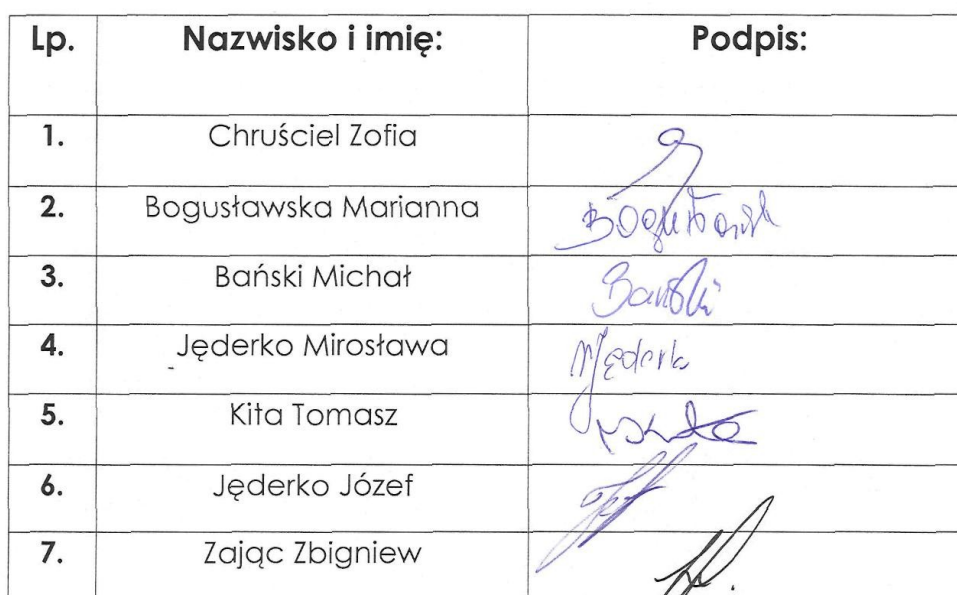 Lp. Nazwisko i imię: Podpis:
1. Chruściel Zofia
2. Bogusławska Marianna
3. Bański Michał Bański
4. Jęderko Mirosława
5. Kita Tomasz
6. Jęderko Józef
7. Zając Zbigniew